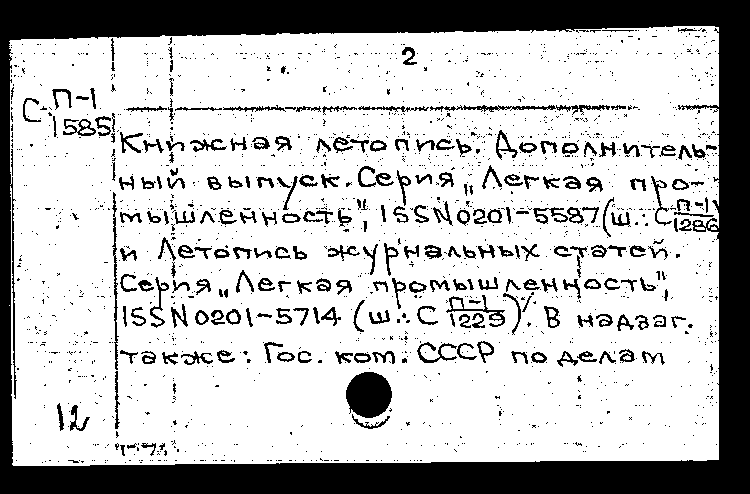 2
С П-1
1585
Книжная летопись. Дополнитель-
ный выпуск. Серия „Легкая про-
мышленность”, ISSN 0201-5587 (ш.: С П-1/1286)
и Летопись журнальных статей.
Серия „Легкая промышленность”,
ISSN 0201-5714 (ш.: С П-1/1229). В надзаг.
также: Гос. ком. СССР по делам
12